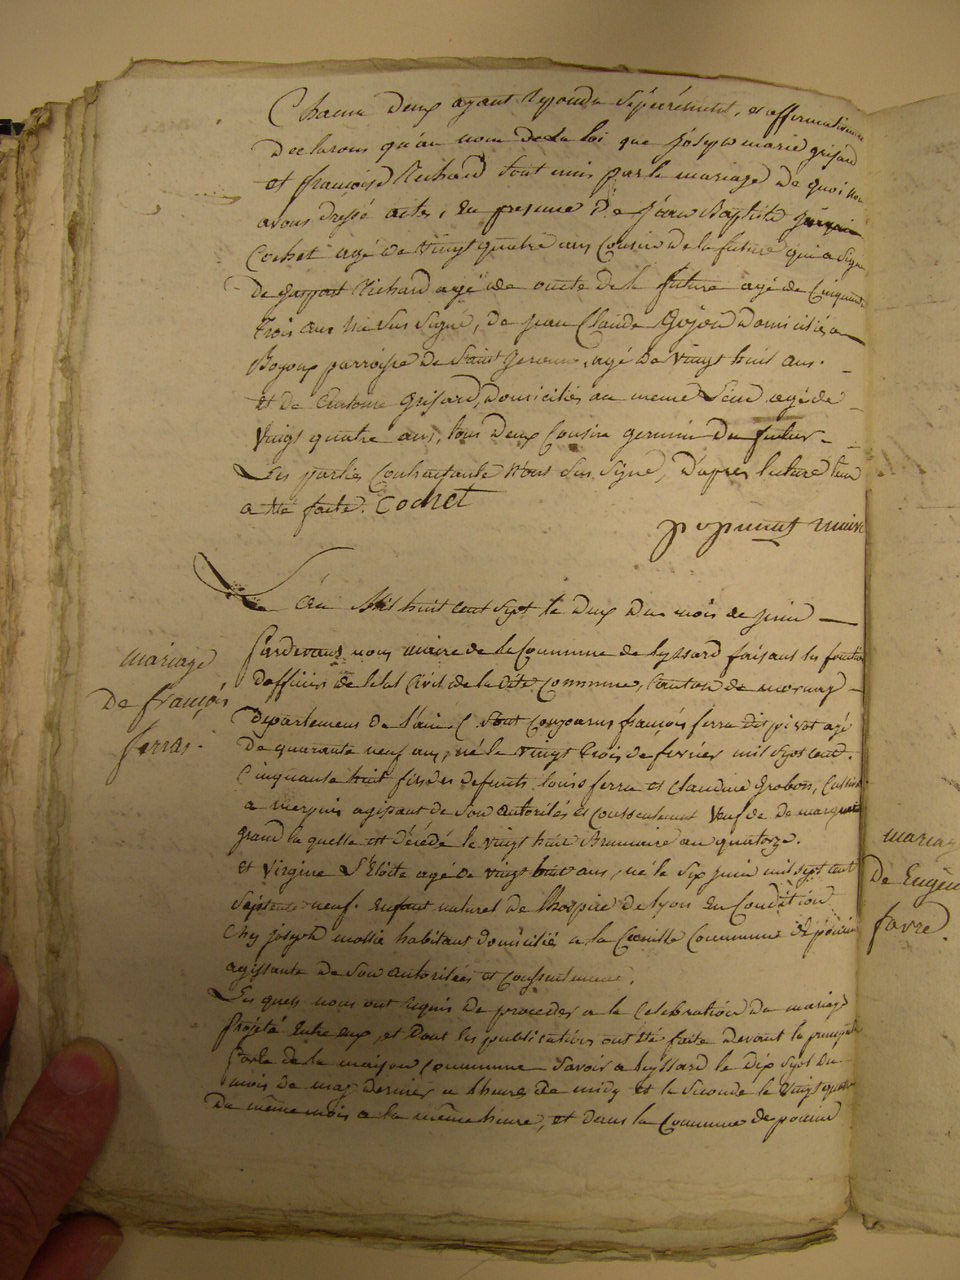 Chacun deux ayant repondu séparément, et affirmativement
declarons qu'au nom de la loi que joseph marie grifard
et françoise Richard sont unis par le mariage de quoi nous
avons dressé acte, en presence de jean Baptiste
Cochet agé de vingt quatre ans Cousin de la future qui a signé
de gaspart Richard agé de oncle de la future agé de Cinquante
trois ans ne sus signé, de jean Claude domicilié a
parroisse de Saint , agé de vingt huit ans.
et de Antoine Grifard, domicilié au meme Lieu agé de
vingt quatre ans, tous deux Cousin germain du futur
Les parties Contractante n'ont sus signé, d'apres lecture leur
a été faite. Cochet
maire
L'an Mil huit cent sept le deux du mois de juin
Pardevant nous maire de la Commune de leyssard faisant les fonction
d'officier de letat Civil de la dite Commune, Canton de
departement de l'ain Sont Comparus françois ferra dit pivot agé
de quarante neuf ans, né le vingt trois de fevrier mil sept cent
Cinquante huit fils des defunts louis ferra et claudine grobon, Cultiv
a agissant de son autorités et Consentement Veuf de
grand la quelle est décédé le vingt huit Brumaire an quatorze.
et Virgine L'Eloite agé de vingt huit ans, né le Six juin mil sept cent
Septente neuf. Enfant naturel de lhospice de lyon En Condition
Chez joseph habitant domicilié a la Commune de
agissante de Son autoritées et Consentement.
Les quels nous ont requis de proceder a la Celebration du mariage
Projeté entre eux, et dont les publications ont été faite devant la principale
Porte de la maison Commune Savoir a leyssard le dix Sept du
mois de may dernier a lheure de midy et la Seconde le Vingt quatre
du même mois a la même heure, et dans la Commune de
mariage
De françois
ferras.
mariage
De Eugène
favre.